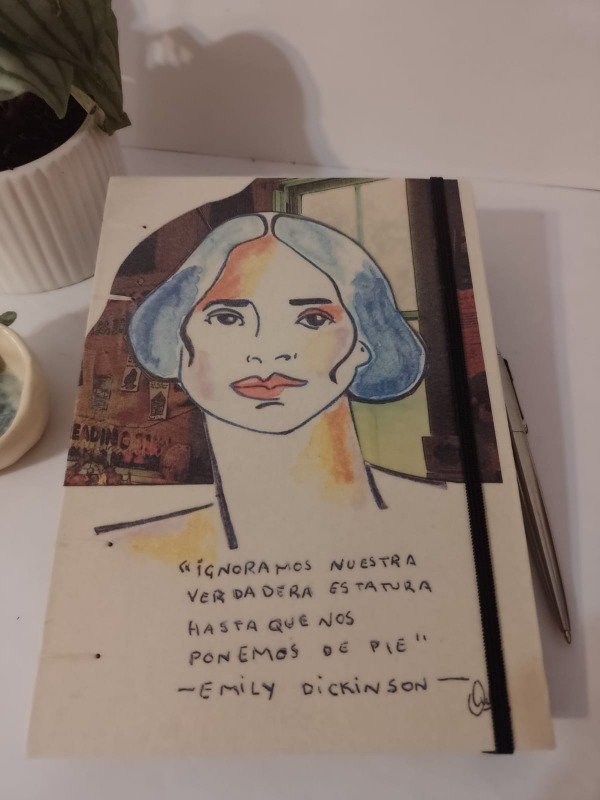 EADING
"IGNORAMOS NUESTRA
VERDADERA ESTATURA
HASTA QUE NOS
PONEMOS DE PIE"
-EMILY DICKINSON-